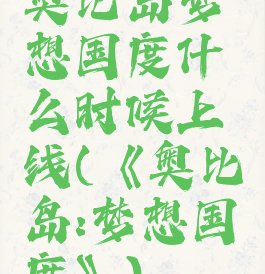 奥比岛梦
想国度什
么时候上
线(《奥比
岛:梦想国
度》)